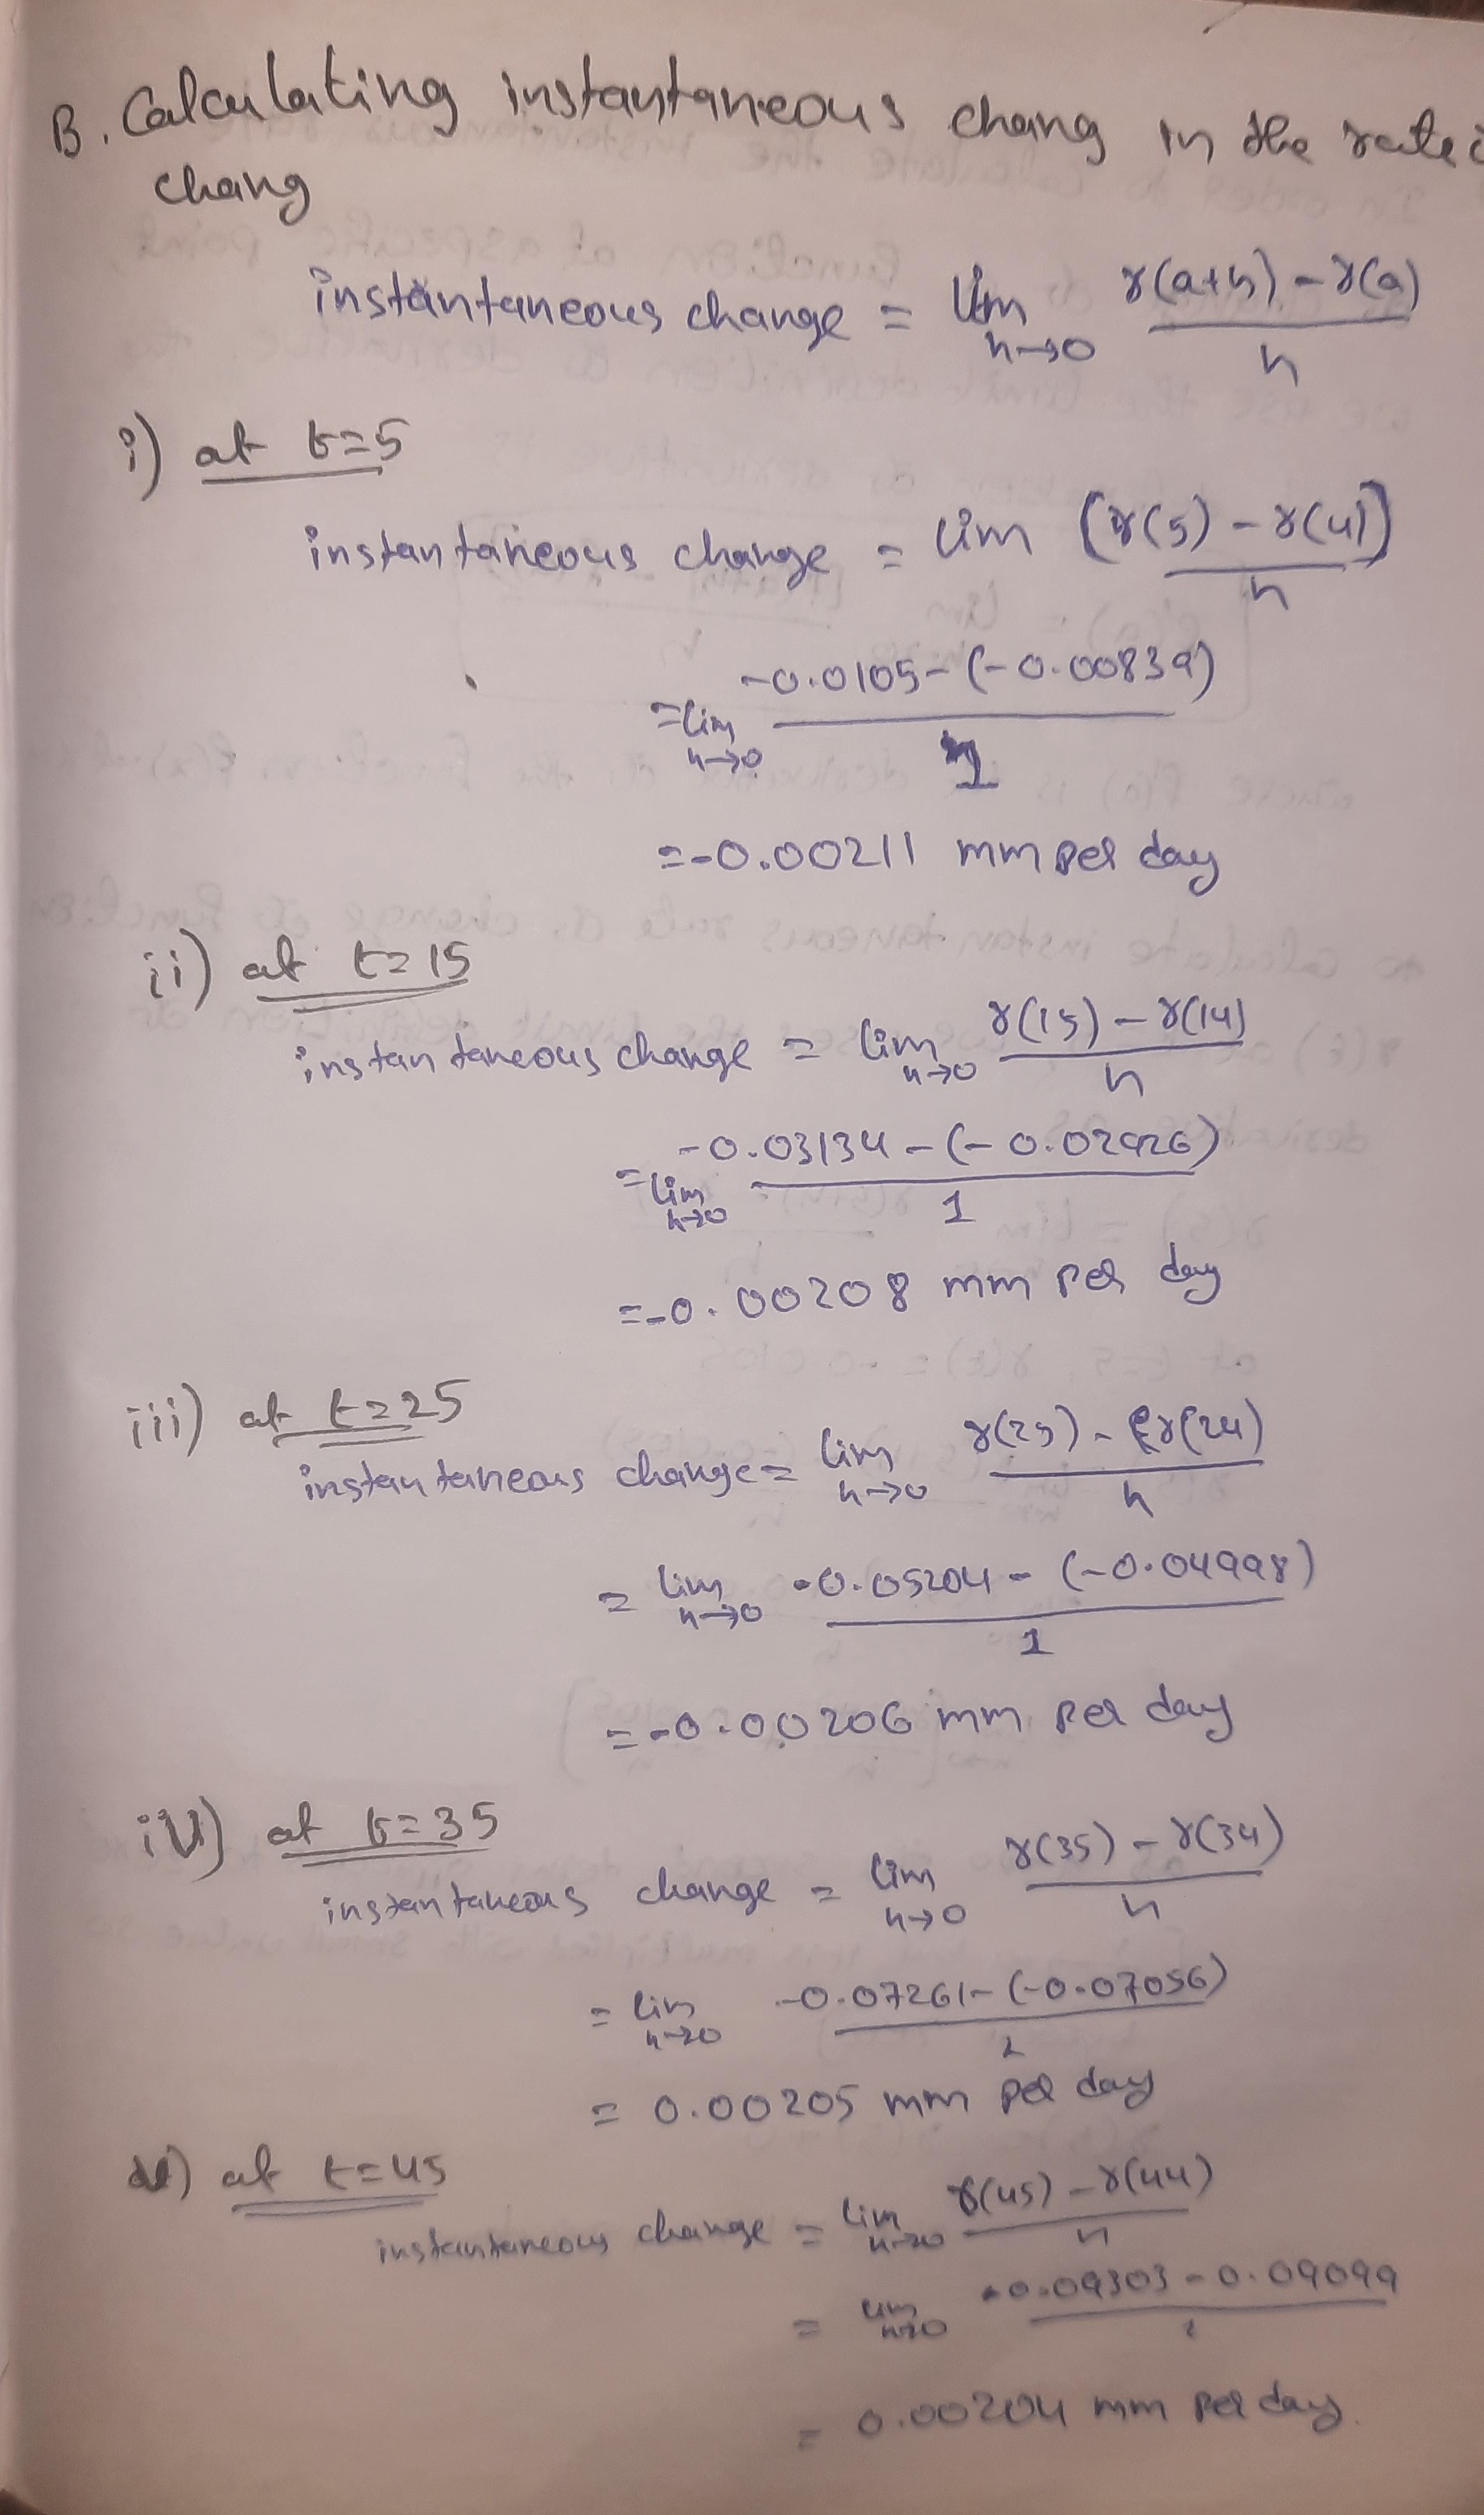 B. Calculating instantaneous chang in the rate
chang
instantaneous change = lim r(a+h) - r(a)
h→0 h
i) at t=5
instantaneous change = lim (r(5) - r(4))
h
= lim -0.0105-(-0.00839)
h→0 1
= -0.00211 mm per day
ii) at t=15
instantaneous change = lim r(15) - r(14)
h→0 h
= lim -0.03134 - (-0.02926)
h→0 1
= -0.00208 mm per day
iii) at t=25
instantaneous change = lim r(25) - r(24)
h→0 h
= lim -0.05204 - (-0.04998)
h→0 1
= -0.00206 mm per day
iv) at t=35
instantaneous change = lim r(35) - r(34)
h→0 h
= lim -0.07261-(-0.07056)
h→0 1
= 0.00205 mm per day
at t=45
instantaneous change = lim r(45) - r(44)
h→0 h
= lim -0.09303-0.09099
h→0 1
= 0.00204 mm per day.